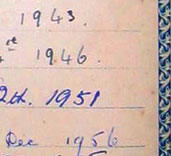 1943.
1946.
2th. 1951
Dec 1956